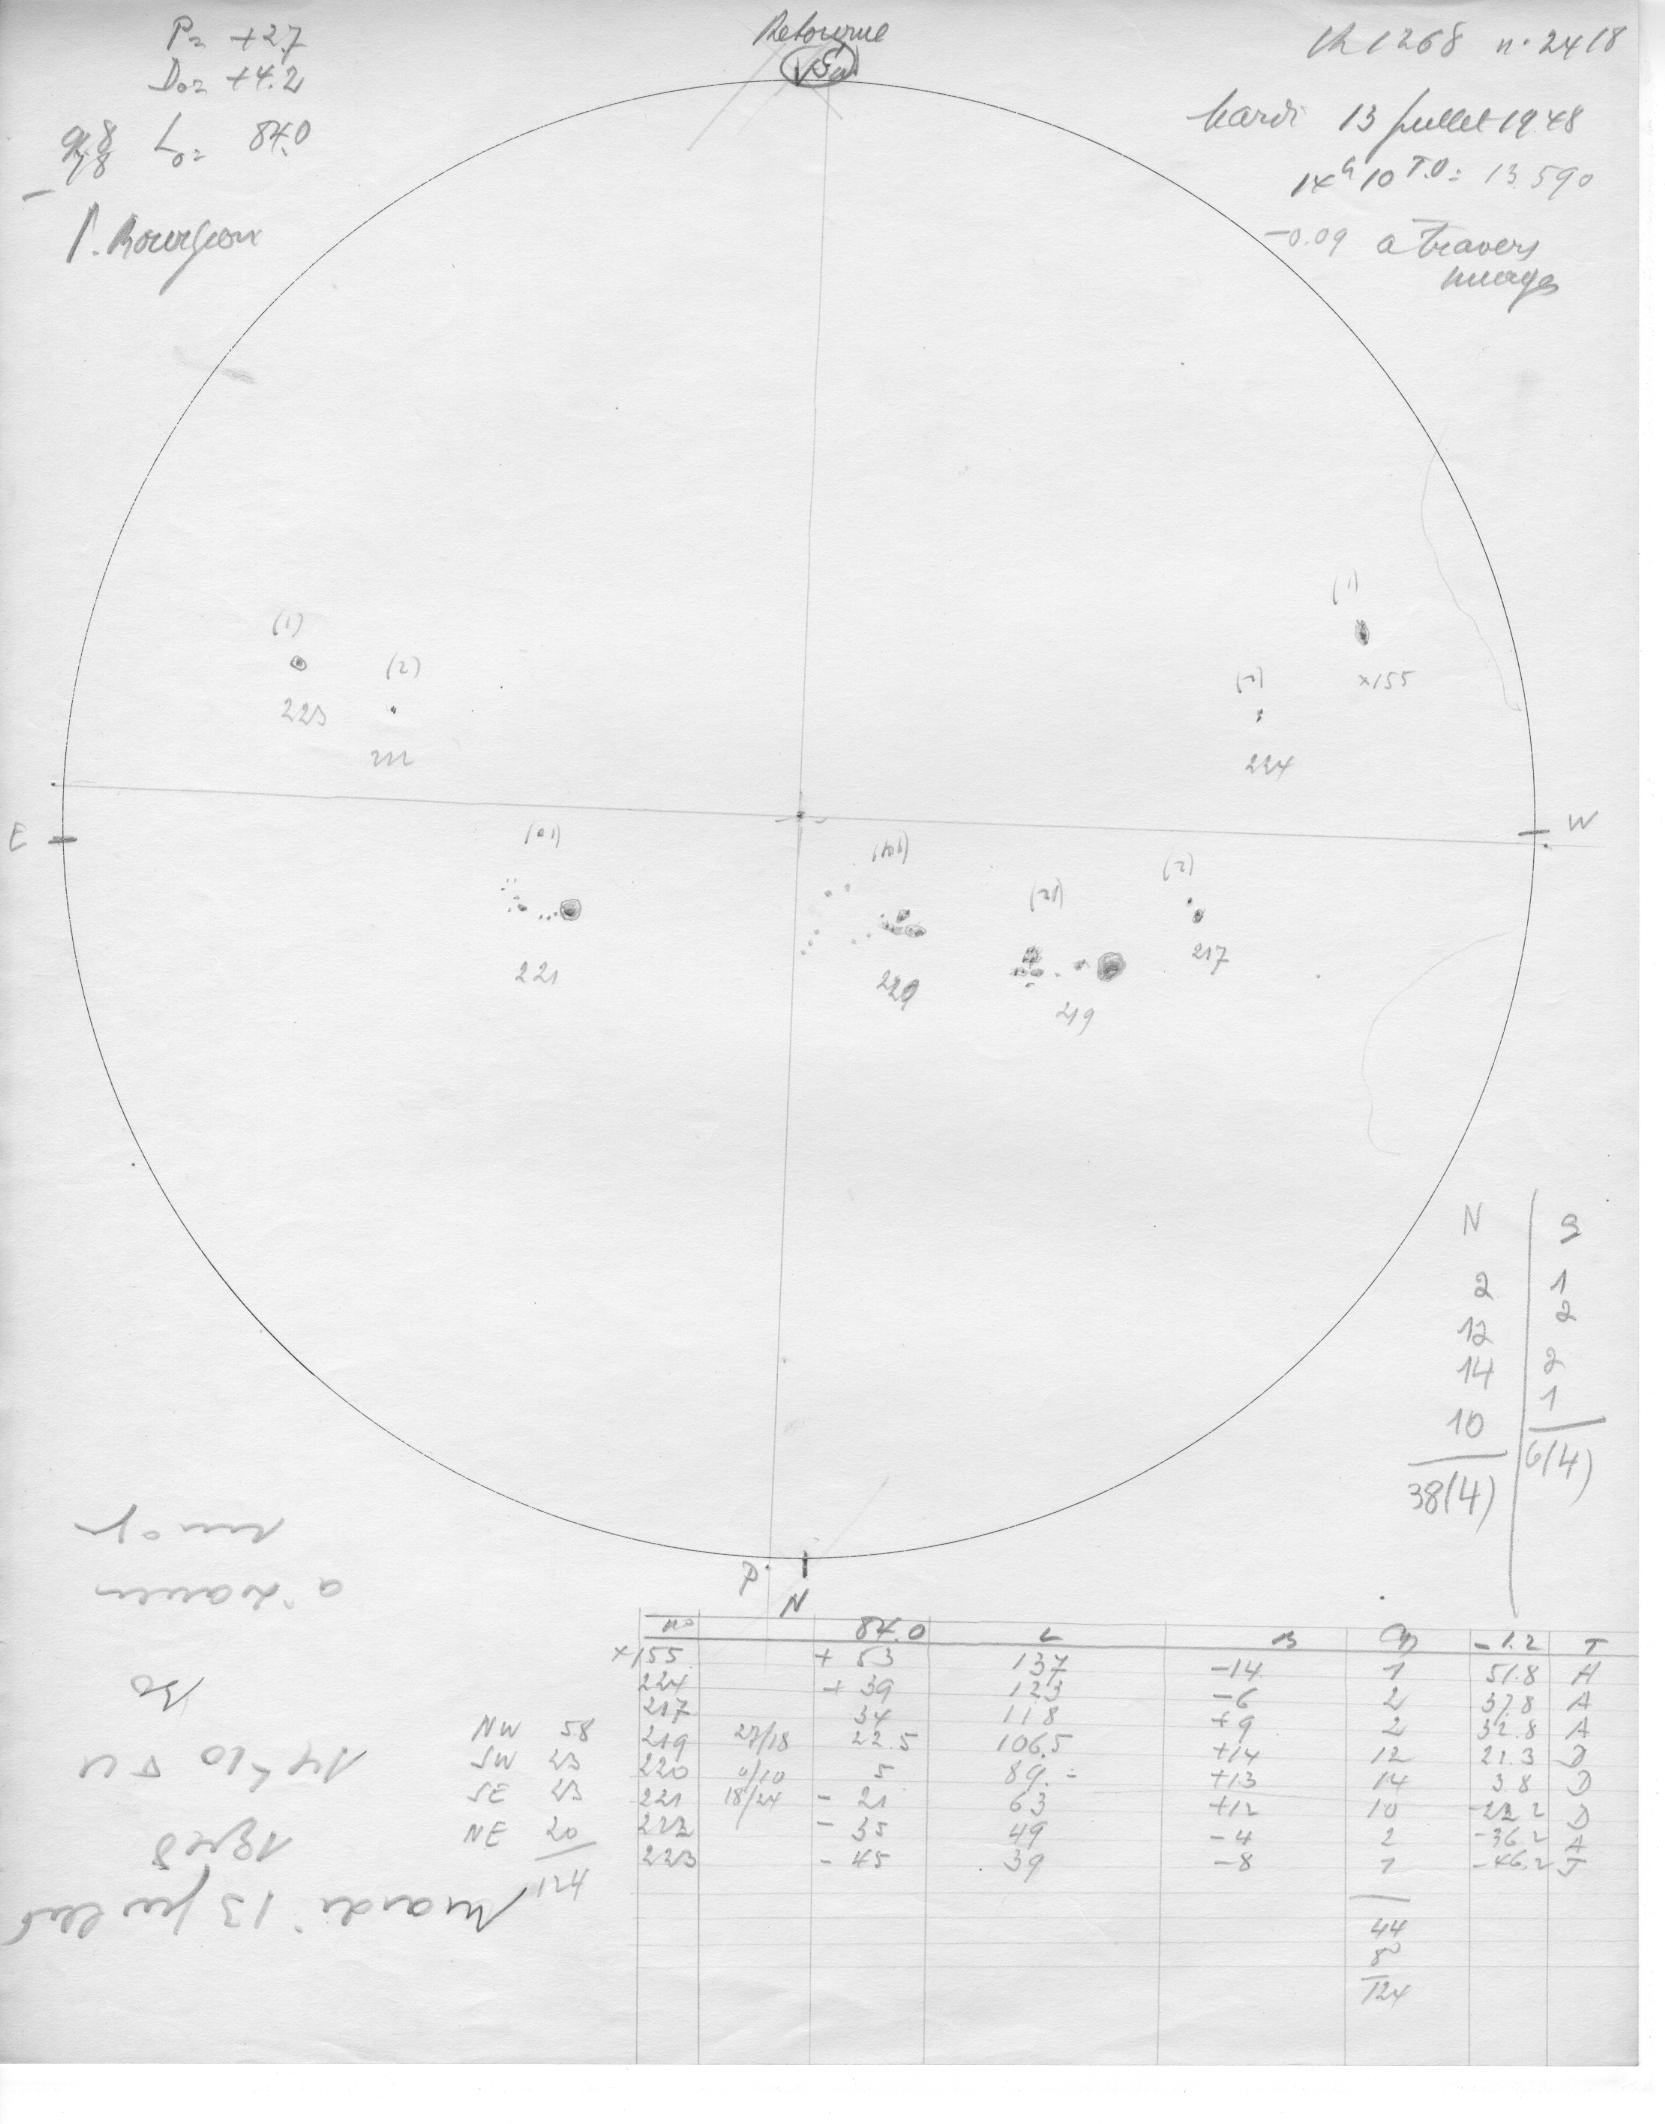 P= +2.7
Do= +4.2
Lo= 84.0
P. Bourgeois
Retourné
R 1268 n° 2418
Mardi 13 juillet 1948
14h10 T.U= 13.590
-0.09 à travers
nuages
(1)
223
(2)
222
(1)
×155
(2)
224
E
W
221
220
(21)
219
(2)
217
N S
2 1
12 2
14 2
10 1
38(4) 6(4)
P
N
n° 84.0 L B -1.2 T
×155 + 53 137 -14 1 51.8 A
224 + 39 123 -6 2 37.8 A
217 34 118 +9 2 32.8 A
NW 58 219 27/18 22.5 106.5 +14 12 21.3 D
SW 23 220 0/10 5 89.- +13 14 3.8 D
SE 23 221 18/24 - 21 63 +12 10 -22.2 D
NE 20 222 - 35 49 -4 2 -36.2 A
124 223 - 45 39 -8 1 -46.2 J
44
8
124
Mardi 13 juillet
1948
14h10 TU
Bo
à travers
nuage